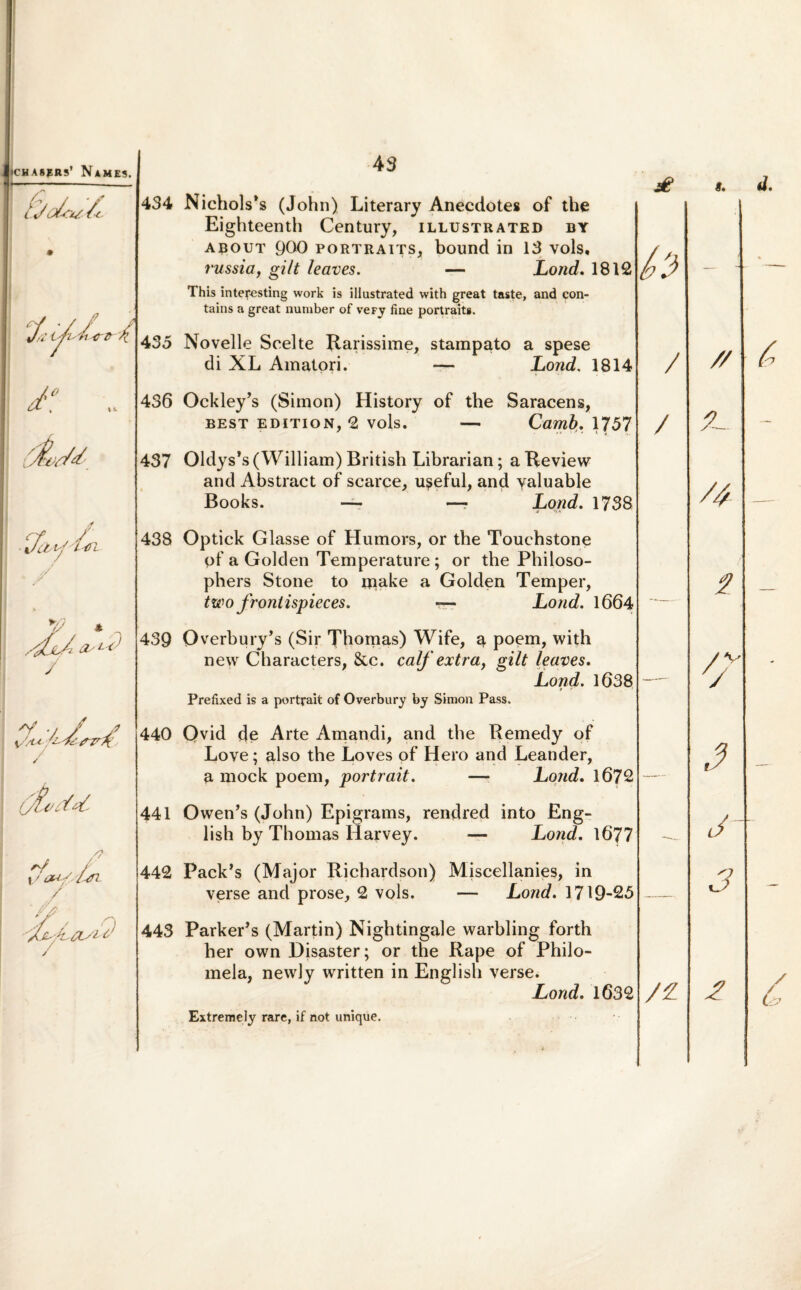 43
CHASERS' NAMES.
£ s. d.
434 Nichols's (John) Literary Anecdotes of the
Eighteenth Century, ILLUSTRATED BY
ABOUT 900 PORTRAITS, bound in 13 vols.
russia, gilt leaves. — Lond. 1812 63 — —
This interesting work is illustrated with great taste, and con-
tains a great number of very fine portraits.
435 Novelle Scelte Rarissime, stampato a spese
di XL Amatori. — Lond. 1814 / // 6
Do
436 Ockley's (Simon) History of the Saracens,
BEST EDITION, 2 vols. — Camb. 1757 / 2 —
Rodd
437 Oldys's (William) British Librarian; a Review
and Abstract of scarce, useful, and valuable
Books. — — Lond. 1738 14 —
Taylor
438 Optick Glasse of Humors, or the Touchstone
of a Golden Temperature; or the Philoso-
phers Stone to make a Golden Temper,
two frontispieces. — Lond. 1664 — 2 —
439 Overbury's (Sir Thomas) Wife, a poem, with
new Characters, &c. calf extra, gilt leaves.
Lond. 1638 — 17 -
Prefixed is a portrait of Overbury by Simon Pass.
440 Ovid de Arte Amandi, and the Remedy of
Love; also the Loves of Hero and Leander,
a mock poem, portrait. — Lond. 1672 — 3 —
Rodd
441 Owen's (John) Epigrams, rendred into Eng-
lish by Thomas Harvey. — Lond. 1677 —
Taylor
442 Pack's (Major Richardson) Miscellanies, in
verse and prose, 2 vols. — Lond. 1719-25 — 3 —
443 Parker's (Martin) Nightingale warbling forth
her own Disaster; or the Rape of Philo-
mela, newly written in English verse.
Lond. 1632 12 2 6
Extremely rare, if not unique.